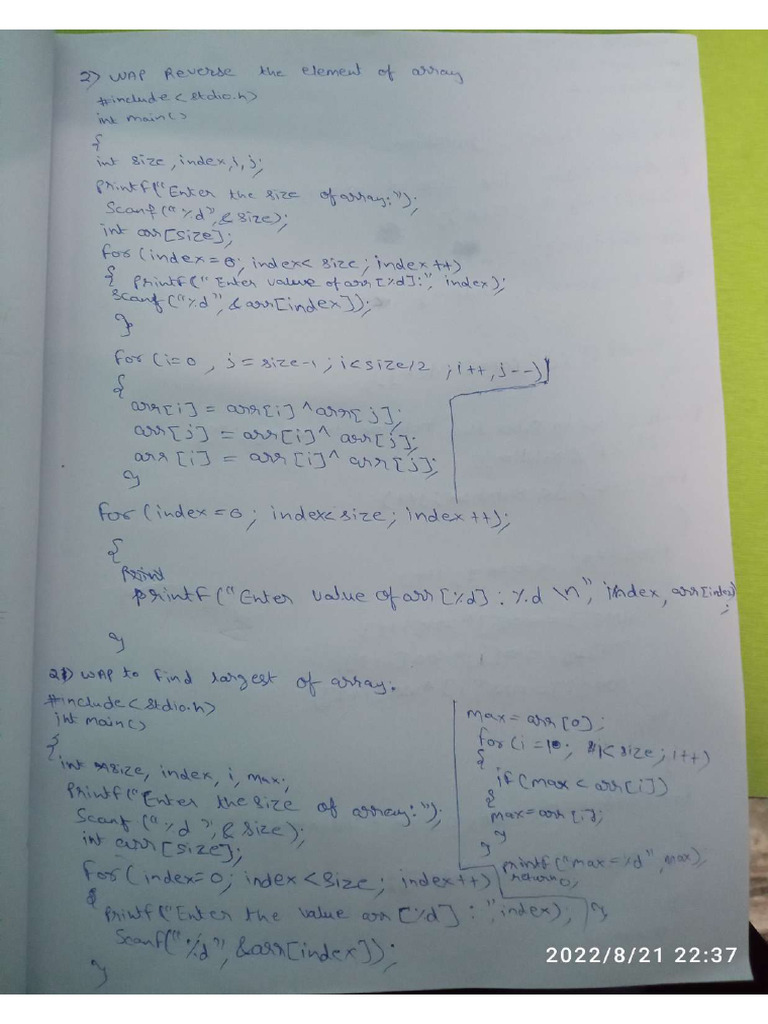 2) WAP Reverse the element of array
#include<stdio.h>
int main()
{
int size, index, i, j;
printf("Enter the size of array:");
Scanf("%d", & size);
int arr[size];
for (index = 0; index < size; index ++)
{ printf("Enter value of arr [%d]:", index);
Scanf ("%d", & arr[index]);
}
for (i=0 , j = size-1 ; i<size/2 ; i++, j--)
{
arr[i] = arr[i] ^ arr[j];
arr[j] = arr[i] ^ arr[j];
arr[i] = arr[i] ^ arr[j];
}
for (index = 0 ; index<size ; index ++);
{
print
printf("Enter value of arr [%d] : %d \n", index, arr[index]
;
}
21) WAP to find largest of array.
#include<stdio.h>
int main()
{
int size, index, i, max;
Printf("Enter the size of array:");
Scanf ("%d", & size);
int arr[size];
for (index=0; index < size; index ++)
{
Printf("Enter the value arr [%d] : ", index);
Scanf("%d", &arr[index]);
}
max = arr [0];
for (i = 1; i< size ; i++)
{
if (max < arr[i])
{
max = arr [i];
}
}
printf("max = %d", max);
return 0;
}
2022/8/21 22:37